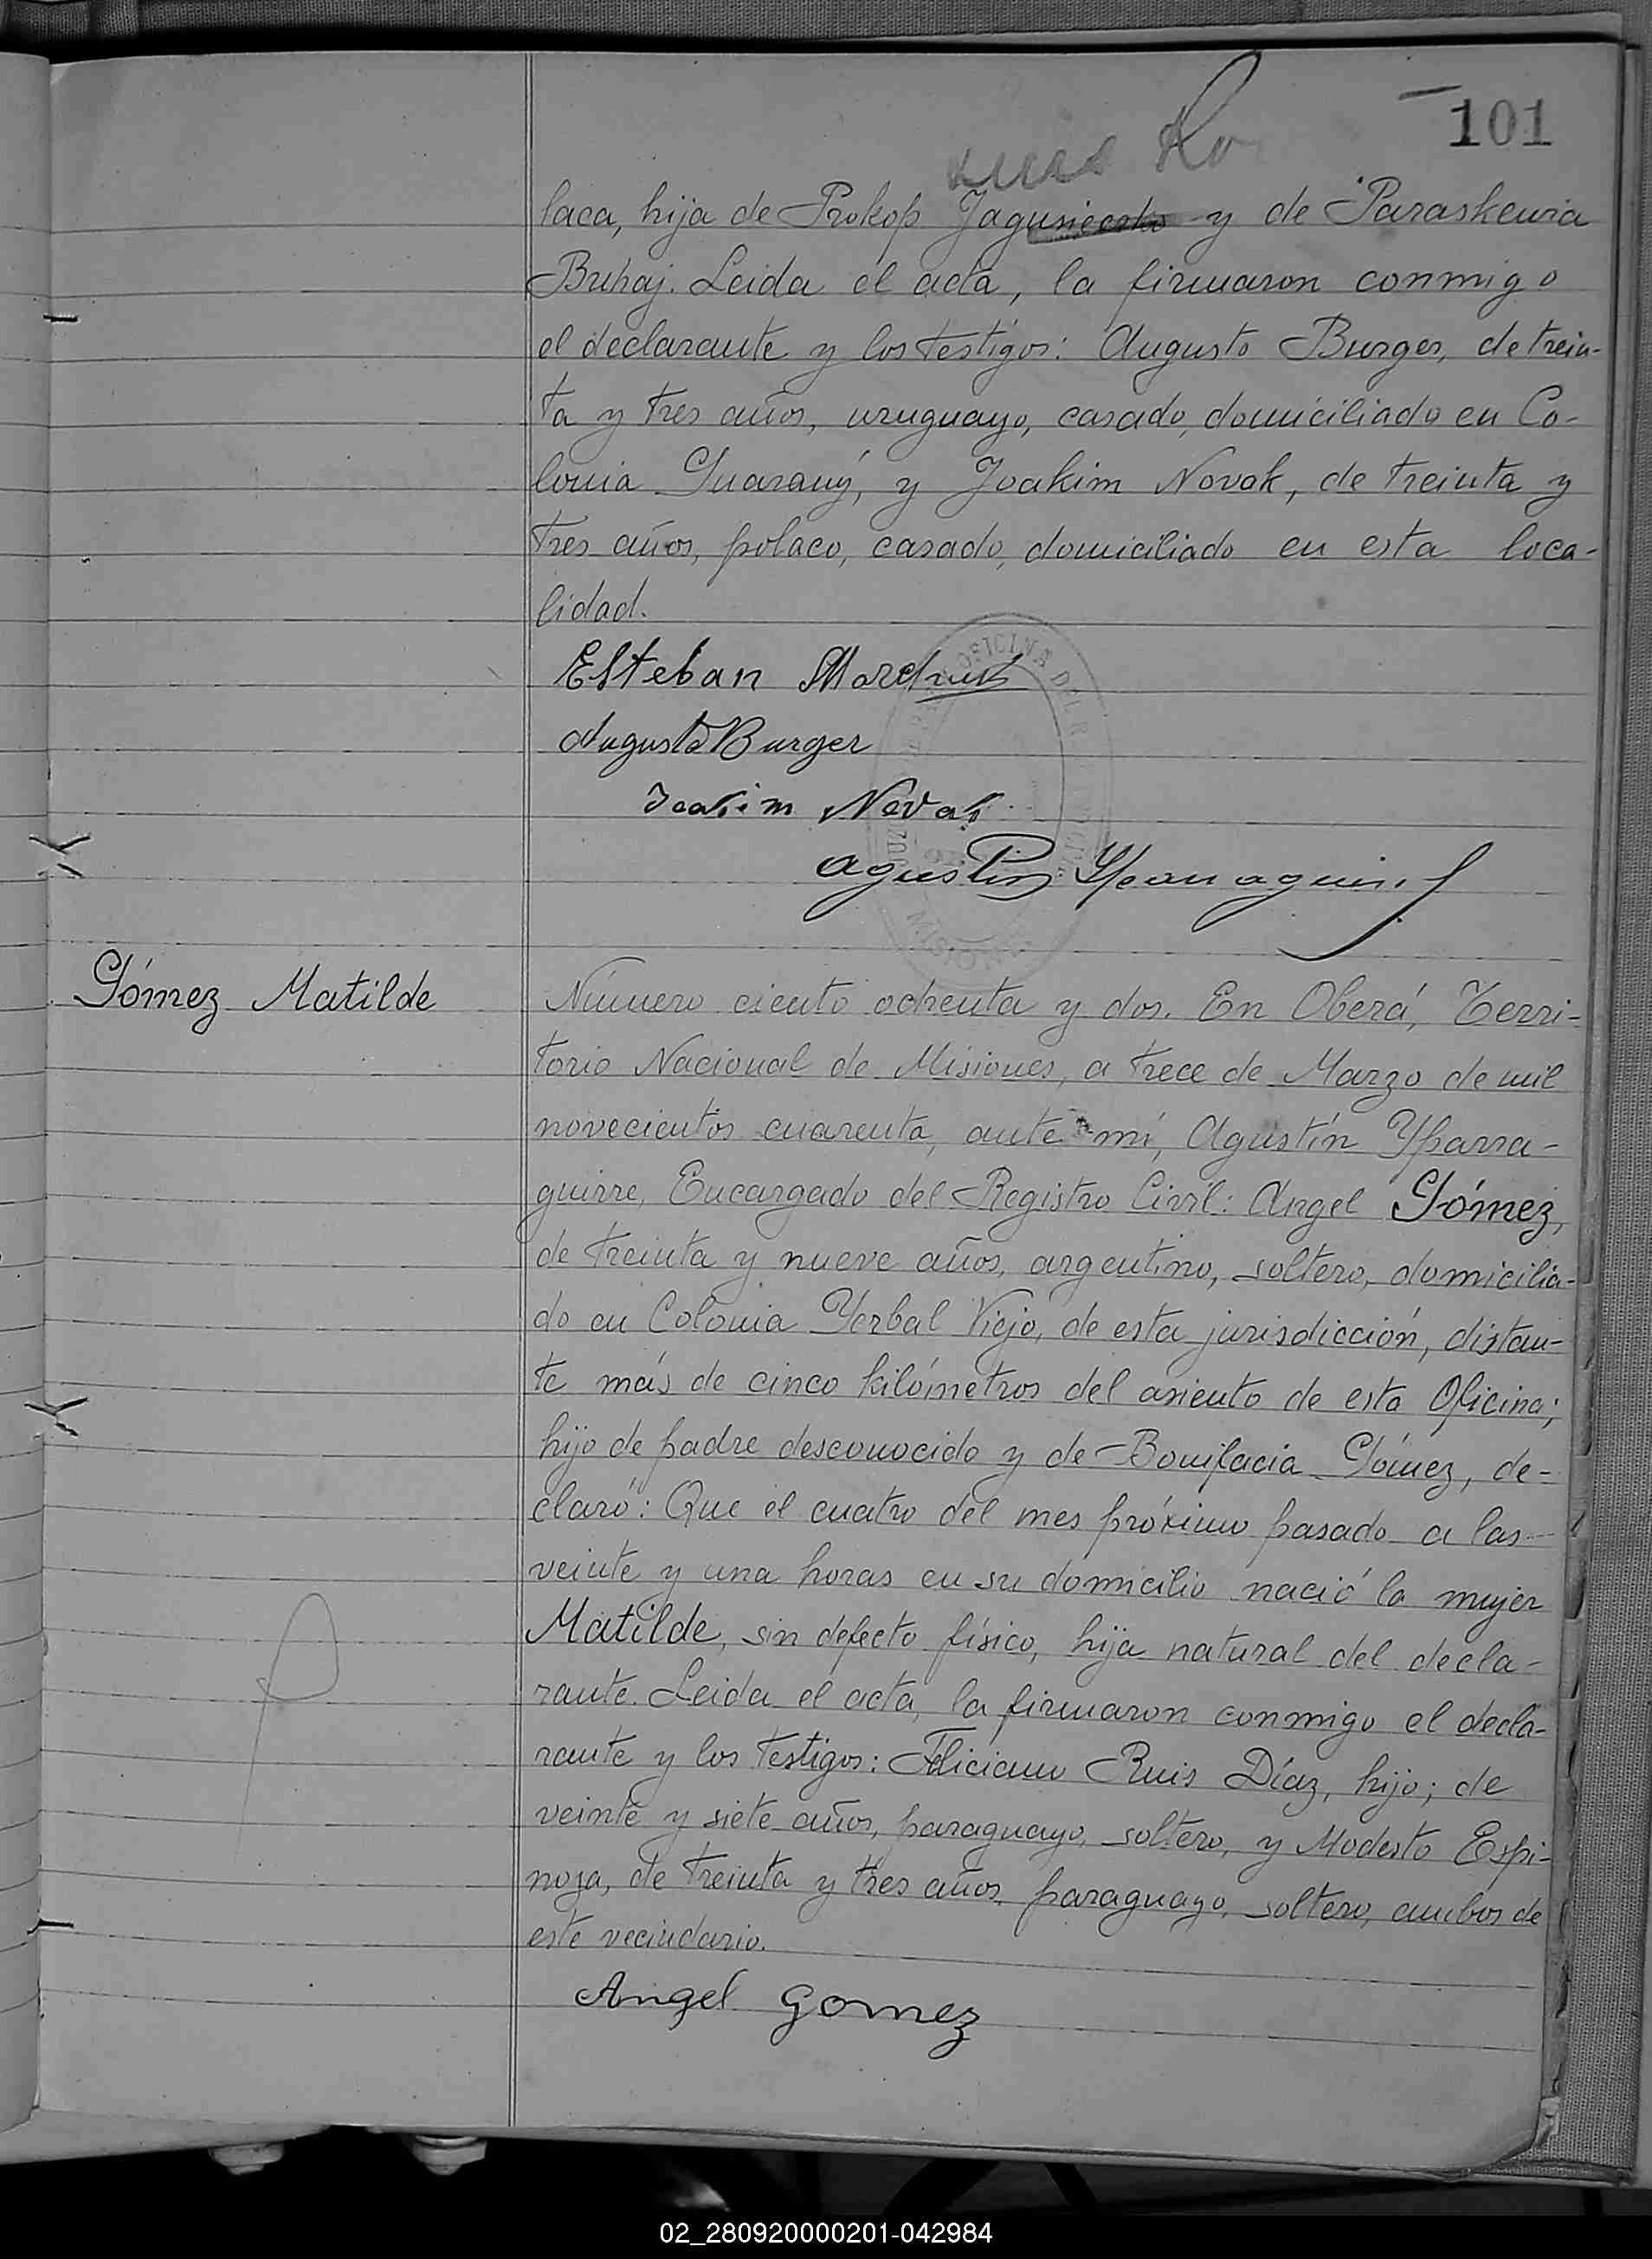 101
laca, hija de Prokop Jagusieczko y de Paraskewia
Buhaj. Leida el acta, la firmaron conmigo
el declarante y los testigos: Augusto Burger, de trein-
ta y tres años, uruguayo, casado, domiciliado en Co-
lonia Guaraný, y Joakim Novak, de treinta y
tres años, polaco, casado, domiciliado en esta loca-
lidad.
Esteban
Augusto Burger
Joakim Novak
Agustin Yparraguirre
Gómez Matilde
Número ciento ochenta y dos. En Oberá, Terri-
torio Nacional de Misiones, a trece de Marzo de mil
novecientos cuarenta, ante mí, Agustín Yparra-
guirre, Encargado del Registro Civil: Angel Gómez,
de treinta y nueve años, argentino, soltero, domicilia-
do en Colonia Yerbal Viejo, de esta jurisdicción, distan-
te más de cinco kilómetros del asiento de esta Oficina;
hijo de padre desconocido y de Bonifacia Gómez, de-
claró: Que el cuatro del mes próximo pasado a las
veinte y una horas en su domicilio nació la mujer
Matilde, sin defecto físico, hija natural del decla-
rante. Leida el acta, la firmaron conmigo el decla-
rante y los testigos: Feliciano Ruis Díaz, hijo; de
veinte y siete años, paraguayo, soltero, y Modesto Espi-
noza, de treinta y tres años, paraguayo, soltero, ambos de
este vecindario.
Angel Gomez
02_280920000201-042984